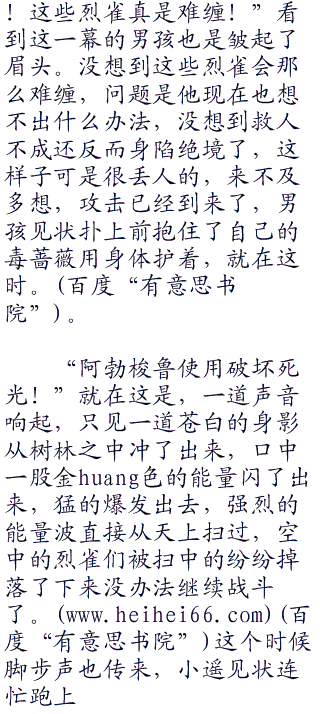 ！这些烈雀真是难缠！”看
到这一幕的男孩也是皱起了
眉头。没想到这些烈雀会那
么难缠，问题是他现在也想
不出什么办法，没想到救人
不成还反而身陷绝境了，这
样子可是很丢人的，来不及
多想，攻击已经到来了，男
孩见状扑上前抱住了自己的
毒蔷薇用身体护着，就在这
时。(百度“有意思书
院”)。
“阿勃梭鲁使用破坏死
光！”就在这是，一道声音
响起，只见一道苍白的身影
从树林之中冲了出来，口中
一股金huang色的能量闪了出
来，猛的爆发出去，强烈的
能量波直接从天上扫过，空
中的烈雀们被扫中的纷纷掉
落了下来没办法继续战斗
了。(www.heihei66.com)(百
度“有意思书院”)这个时候
脚步声也传来，小遥见状连
忙跑上